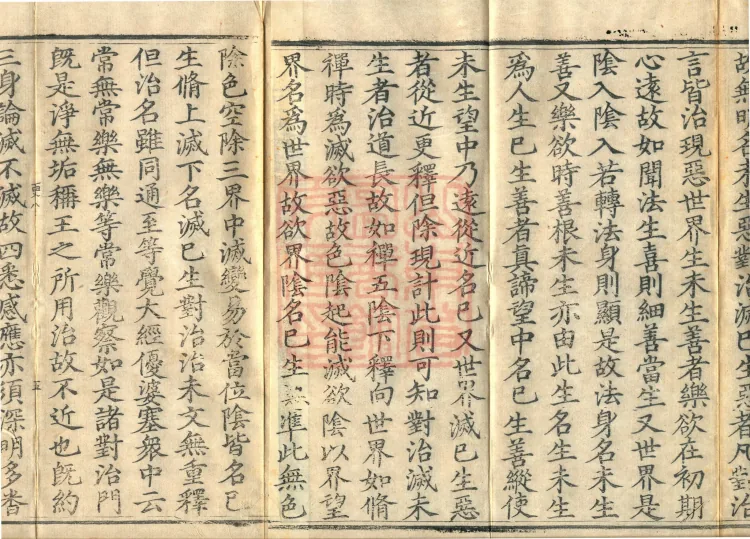 故無明名未生惡對治滅已生惡者凡對治
言皆治現惡世界生未生善者樂欲在初期
心遠故如聞法生喜則細善當生又世界是
陰入陰入若轉法身則顯是故法身名未生
善又樂欲時善根未生亦由此生名生未生
爲人生已生善者真諦望中名已生善縱使
未生望中乃遠從近名已又世界滅已生惡
者從近更釋但除現計此則可知對治滅未
生者治道長故如禪五陰下釋向世界如脩
禪時爲滅欲惡故色陰起能滅欲陰以界望
界名爲世界故欲界陰名已生準此無色
除色空除三界中滅變易於當位陰皆名已
生脩上滅下名滅已生對治治未文無重釋
但治名雖同通至等覺大經優婆塞衆中云
常無常樂無樂等常樂觀察如是諸對治門
旣是淨無垢稱王之所用治故不近也旣約
三身論滅不滅故四悉感應亦須深明多沓
百十八
五